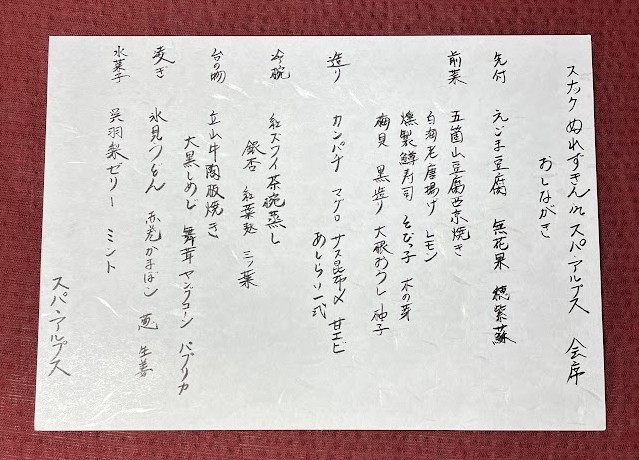 スナックぬれずきん in スパ・アルプス 会席
おしながき
先付 えごま豆腐 無花果 穂紫蘇
前菜 五箇山豆腐西京焼き
白海老唐揚げ レモン
燻製鱒寿司 そぼっ子 木の芽
梅貝 黒造り 大根おろし 柚子
造り カンパチ マグロ ナス昆布〆 甘エビ
あしらい一式
冷椀 紅ズワイ茶碗蒸し
銀杏 紅葉麩 三ツ葉
台の物 立山牛陶板焼き
大黒しめじ 舞茸 ヤングコーン パプリカ
凌ぎ 氷見うどん 赤巻かまぼこ 葱 生姜
水菓子 呉羽梨ゼリー ミント
スパ・アルプス